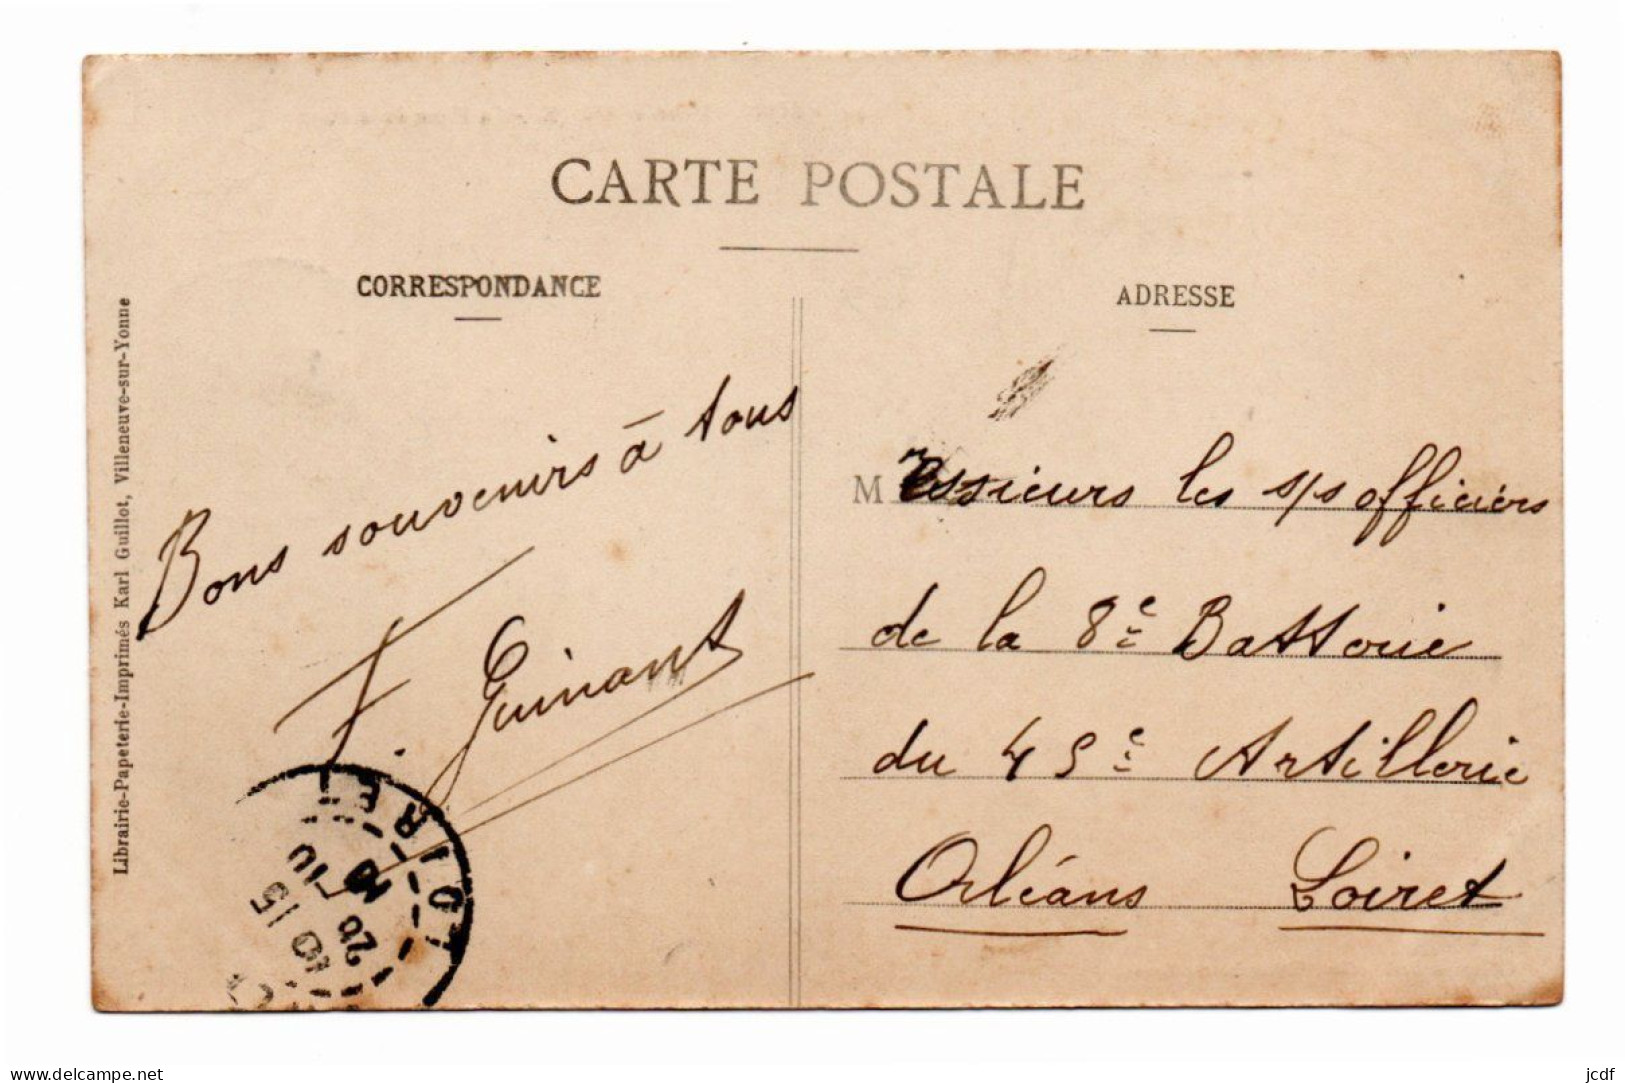 CARTE POSTALE
CORRESPONDANCE
Bons souvenirs à tous
F. Guinant
Librairie-Papeterie-Imprimés Karl Guillot, Villeneuve-sur-Yonne
LOIRET
10 15
20 10
ADRESSE
Messieurs les s/s officiers
de la 8e Batterie
du 45e Artillerie
Orléans Loiret
delcampe.net
jcdf